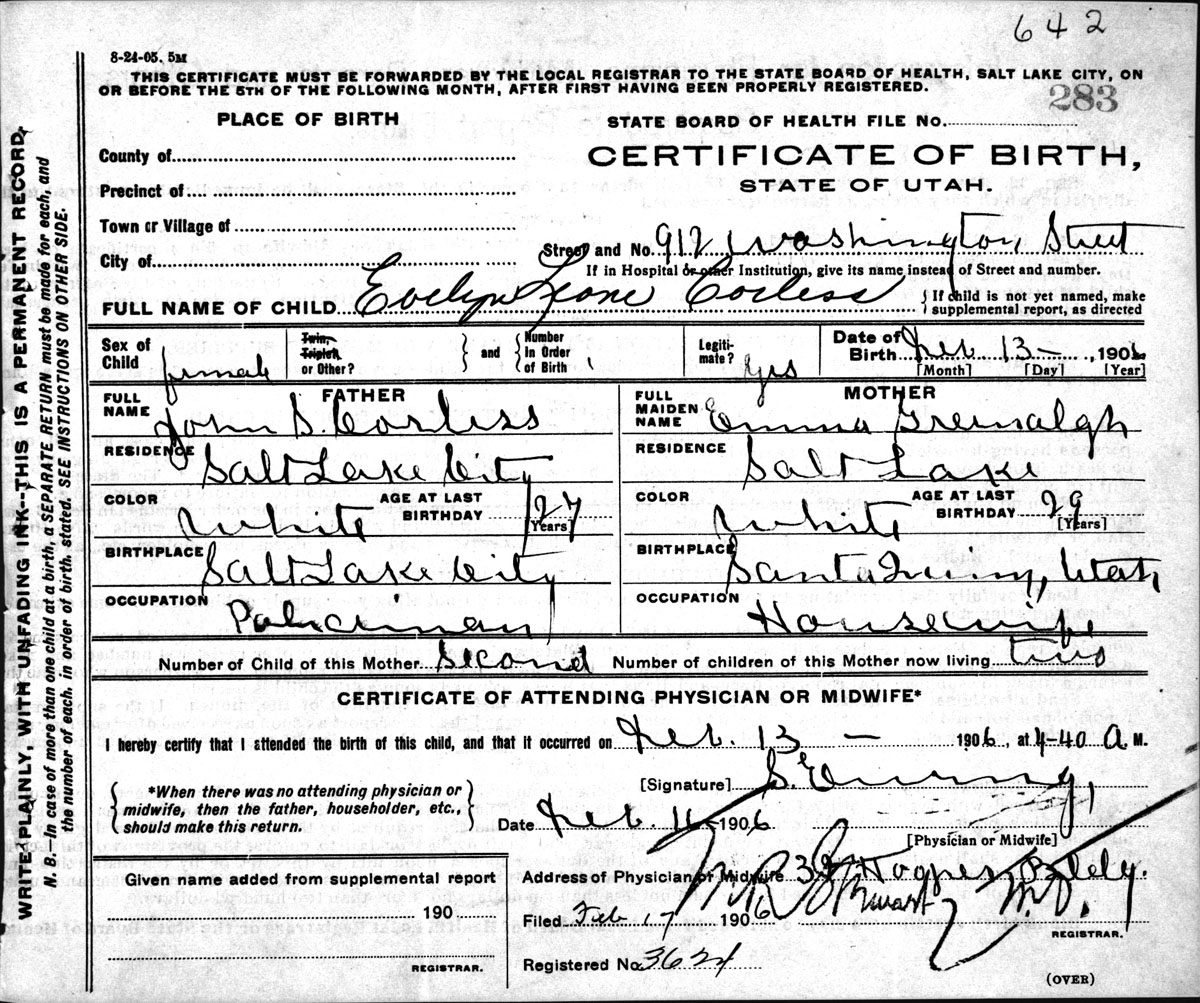 642
8-24-05. 5M
THIS CERTIFICATE MUST BE FORWARDED BY THE LOCAL REGISTRAR TO THE STATE BOARD OF HEALTH, SALT LAKE CITY, ON
OR BEFORE THE 5TH OF THE FOLLOWING MONTH, AFTER FIRST HAVING BEEN PROPERLY REGISTERED.
283
PLACE OF BIRTH
STATE BOARD OF HEALTH FILE No.
County of
CERTIFICATE OF BIRTH,
Precinct of
STATE OF UTAH.
Town or Village of
Street and No. 912 Washington Street
City of
If in Hospital or other Institution, give its name instead of Street and number.
FULL NAME OF CHILD Evelyn Leone Corless
{If child is not yet named, make
supplemental report, as directed
Sex of Child female
Twin, Triplet, or Other? } and { Number in Order of Birth 1
Legiti-mate? yes
Date of Birth Feb 13 - , 1906
[Month] [Day] [Year]
FATHER
FULL NAME John S. Corless
RESIDENCE Salt Lake City
COLOR White AGE AT LAST BIRTHDAY 27 [Years]
BIRTHPLACE Salt Lake City
OCCUPATION Policiman
MOTHER
FULL MAIDEN NAME Emma
RESIDENCE Salt Lake
COLOR White AGE AT LAST BIRTHDAY 29 [Years]
BIRTHPLACE Utah
OCCUPATION Housewife
Number of Child of this Mother Second Number of children of this Mother now living two
CERTIFICATE OF ATTENDING PHYSICIAN OR MIDWIFE*
I hereby certify that I attended the birth of this child, and that it occurred on Feb. 13 - 1906, at 4-40 A M.
{*When there was no attending physician or
midwife, then the father, householder, etc.,
should make this return.}
[Signature] S.
Date Feb. 1906
[Physician or Midwife]
Given name added from supplemental report
190
REGISTRAR.
Address of Physician or Midwife
Filed Feb 17 1906 Stewart M.D.
REGISTRAR.
Registered No. 3624
(OVER)
WRITE PLAINLY, WITH UNFADING INK--THIS IS A PERMANENT RECORD.
N. B.--In case of more than one child at a birth, a SEPARATE RETURN must be made for each, and
the number of each, in order of birth, stated. SEE INSTRUCTIONS ON OTHER SIDE.